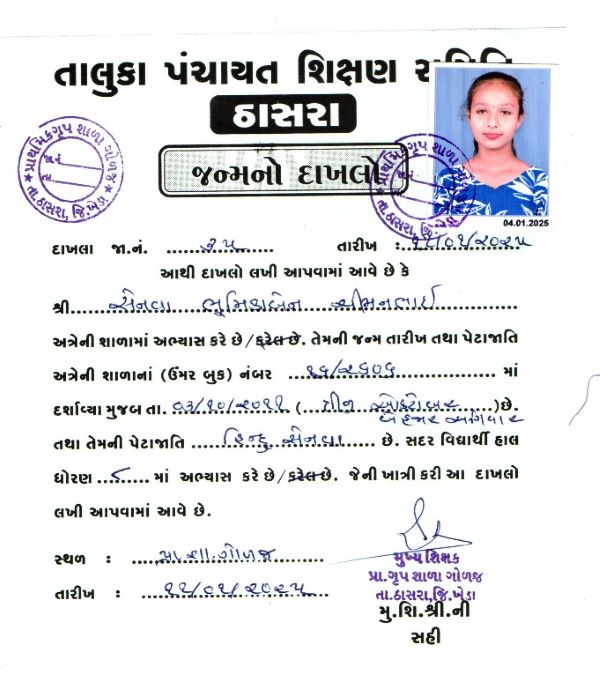 તાલુકા પંચાયત શિક્ષણ સમિતિ
ઠાસરા
જન્મનો દાખલો
પ્રાથમિક ગૃપ શાળા ગોળજ
જા.નં.
તા.
તા. ઠાસરા, જિ.ખેડા
04.01.2025
દાખલા જા.નં. ૨૫ તારીખ : ૧૫/૦૧/૨૦૨૫
આથી દાખલો લખી આપવામાં આવે છે કે
શ્રી સેનવા ભુમિકાબેન ચીમનભાઈ
અત્રેની શાળામાં અભ્યાસ કરે છે/કરેલ છે. તેમની જન્મ તારીખ તથા પેટાજાતિ
અત્રેની શાળાનાં (ઉંમર બુક) નંબર ૧૬/૨૬૦૬ માં
દર્શાવ્યા મુજબ તા. ૦૩/૧૦/૨૦૧૧ (ત્રીજી ઓક્ટોબર
બે હજાર અગિયાર)છે.
તથા તેમની પેટાજાતિ હિન્દુ સેનવા છે. સદર વિદ્યાર્થી હાલ
ધોરણ ૮ માં અભ્યાસ કરે છે/કરેલ છે. જેની ખાત્રી કરી આ દાખલો
લખી આપવામાં આવે છે.
સ્થળ : પ્રા.શા.ગોળજ
તારીખ : ૧૫/૦૧/૨૦૨૫
મુખ્ય શિક્ષક
પ્રા.ગૃપ શાળા ગોળજ
તા.ઠાસરા,જિ.ખેડા
મુ.શિ.શ્રી.ની
સહી